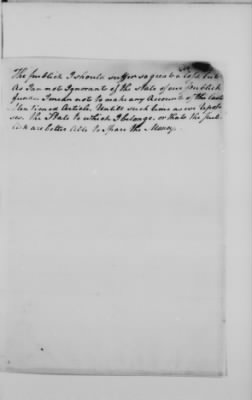 The publick I should suffer so great a loss but
As I am not Ignorant of the State of our publick
funds I mean not to make any Account of the last
Mentioned Article, Untill such time as
ses. the State to which I belonge, or that the pub
lick are better Able to Spare the Money.